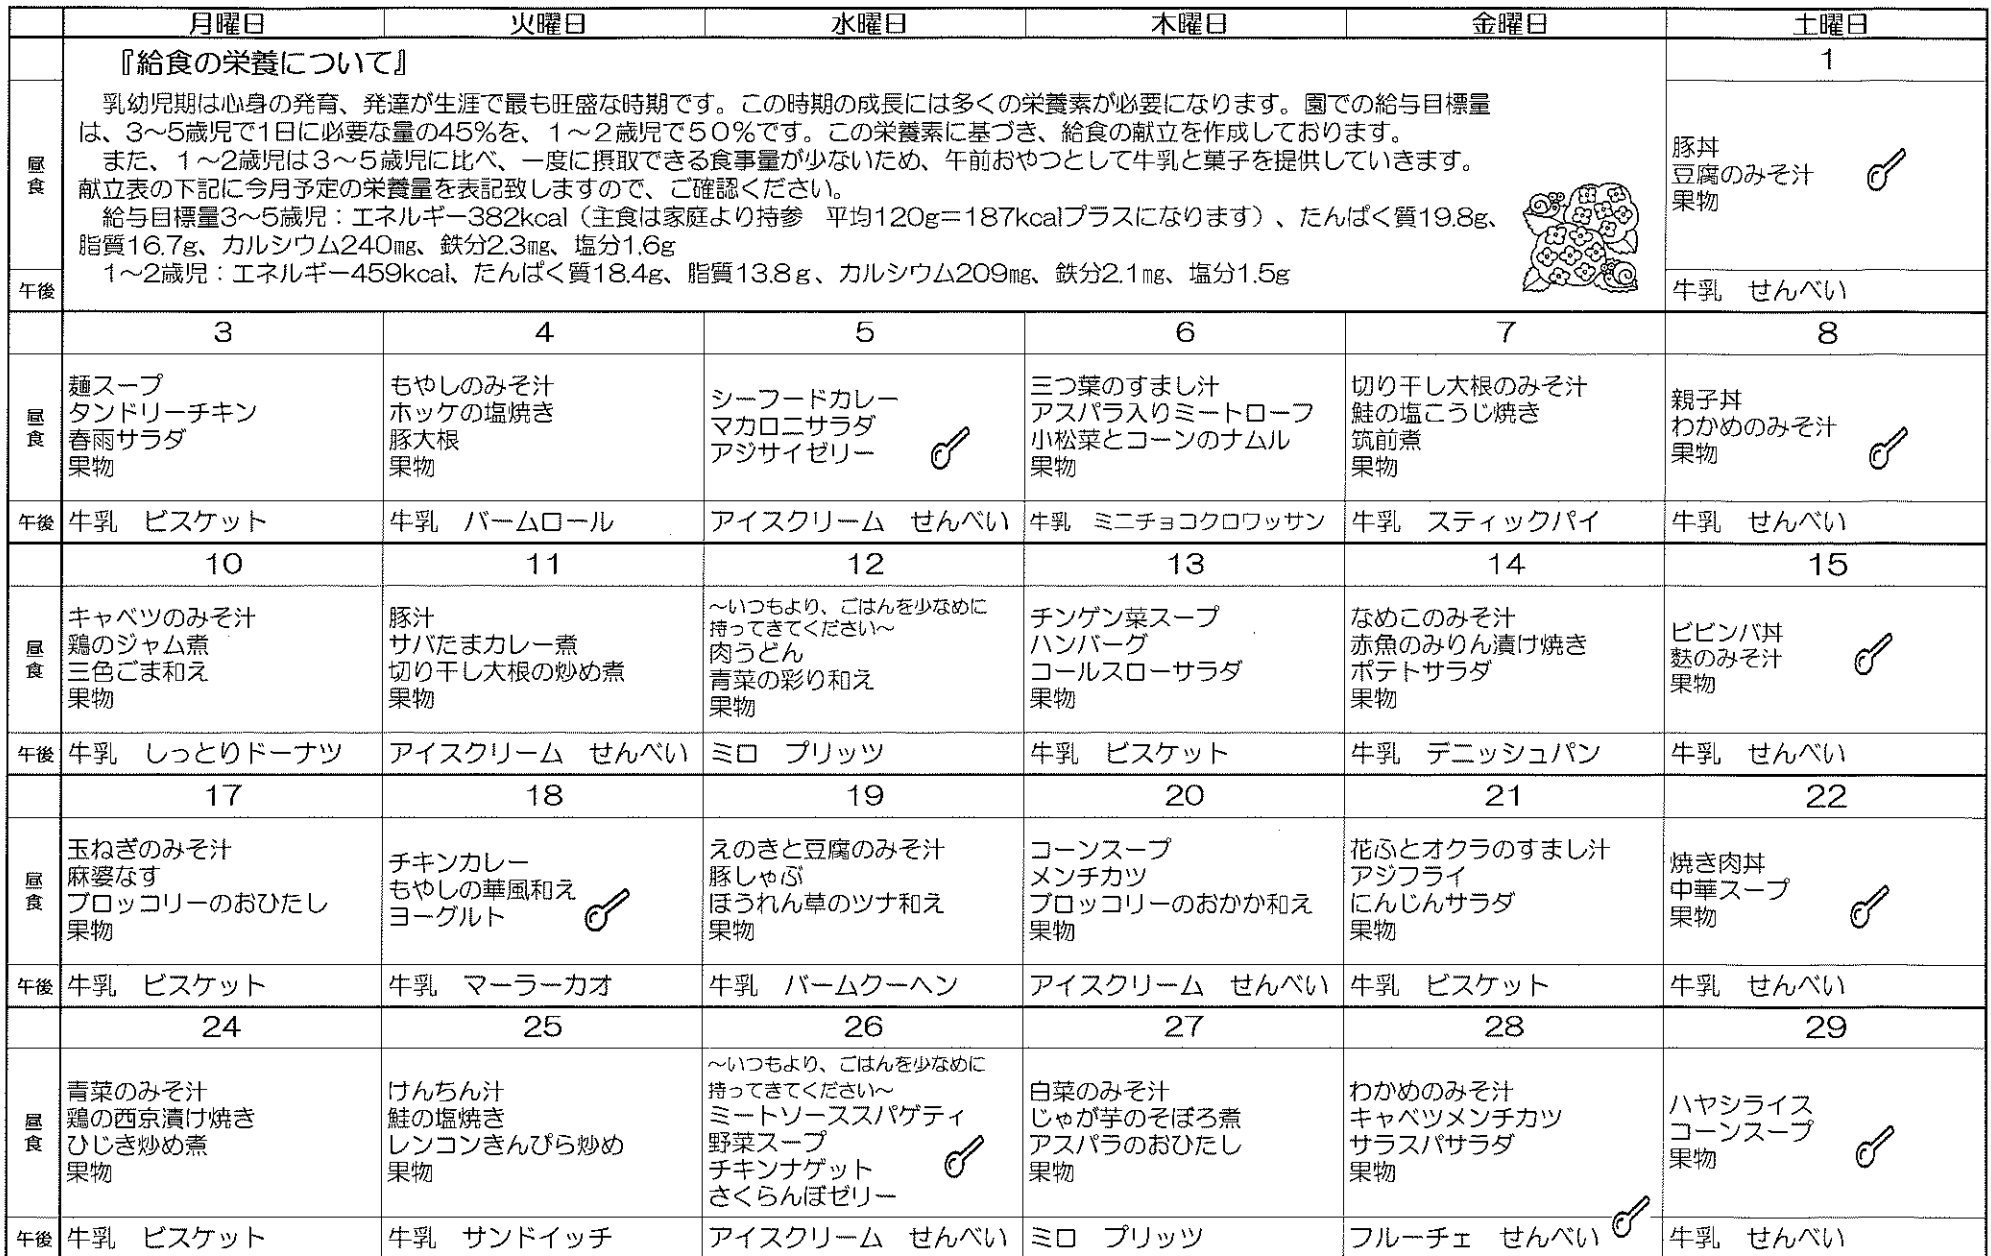 月曜日 火曜日 水曜日 木曜日 金曜日 土曜日
『給食の栄養について』
乳幼児期は心身の発育、発達が生涯で最も旺盛な時期です。この時期の成長には多くの栄養素が必要になります。園での給与目標量
は、3～5歳児で1日に必要な量の45%を、1～2歳児で50%です。この栄養素に基づき、給食の献立を作成しております。
また、1～2歳児は3～5歳児に比べ、一度に摂取できる食事量が少ないため、午前おやつとして牛乳と菓子を提供していきます。
献立表の下記に今月予定の栄養量を表記致しますので、ご確認ください。
給与目標量3～5歳児：エネルギー382kcal（主食は家庭より持参 平均120g＝187kcalプラスになります）、たんぱく質19.8g、
脂質16.7g、カルシウム240㎎、鉄分2.3㎎、塩分1.6g
1～2歳児：エネルギー459kcal、たんぱく質18.4g、脂質13.8g、カルシウム209㎎、鉄分2.1㎎、塩分1.5g
1
昼食
豚丼
豆腐のみそ汁
果物
午後
牛乳 せんべい
3 4 5 6 7 8
昼食
麺スープ
タンドリーチキン
春雨サラダ
果物
もやしのみそ汁
ホッケの塩焼き
豚大根
果物
シーフードカレー
マカロニサラダ
アジサイゼリー
三つ葉のすまし汁
アスパラ入りミートローフ
小松菜とコーンのナムル
果物
切り干し大根のみそ汁
鮭の塩こうじ焼き
筑前煮
果物
親子丼
わかめのみそ汁
果物
午後 牛乳 ビスケット 牛乳 バームロール アイスクリーム せんべい 牛乳 ミニチョコクロワッサン 牛乳 スティックパイ 牛乳 せんべい
10 11 12 13 14 15
昼食
キャベツのみそ汁
鶏のジャム煮
三色ごま和え
果物
豚汁
サバたまカレー煮
切り干し大根の炒め煮
果物
～いつもより、ごはんを少なめに
持ってきてください～
肉うどん
青菜の彩り和え
果物
チンゲン菜スープ
ハンバーグ
コールスローサラダ
果物
なめこのみそ汁
赤魚のみりん漬け焼き
ポテトサラダ
果物
ビビンバ丼
麩のみそ汁
果物
午後 牛乳 しっとりドーナツ アイスクリーム せんべい ミロ プリッツ 牛乳 ビスケット 牛乳 デニッシュパン 牛乳 せんべい
17 18 19 20 21 22
昼食
玉ねぎのみそ汁
麻婆なす
ブロッコリーのおひたし
果物
チキンカレー
もやしの華風和え
ヨーグルト
えのきと豆腐のみそ汁
豚しゃぶ
ほうれん草のツナ和え
果物
コーンスープ
メンチカツ
ブロッコリーのおかか和え
果物
花ふとオクラのすまし汁
アジフライ
にんじんサラダ
果物
焼き肉丼
中華スープ
果物
午後 牛乳 ビスケット 牛乳 マーラーカオ 牛乳 バームクーヘン アイスクリーム せんべい 牛乳 ビスケット 牛乳 せんべい
24 25 26 27 28 29
昼食
青菜のみそ汁
鶏の西京漬け焼き
ひじき炒め煮
果物
けんちん汁
鮭の塩焼き
レンコンきんぴら炒め
果物
～いつもより、ごはんを少なめに
持ってきてください～
ミートソーススパゲティ
野菜スープ
チキンナゲット
さくらんぼゼリー
白菜のみそ汁
じゃが芋のそぼろ煮
アスパラのおひたし
果物
わかめのみそ汁
キャベツメンチカツ
サラスパサラダ
果物
ハヤシライス
コーンスープ
果物
午後 牛乳 ビスケット 牛乳 サンドイッチ アイスクリーム せんべい ミロ プリッツ フルーチェ せんべい 牛乳 せんべい